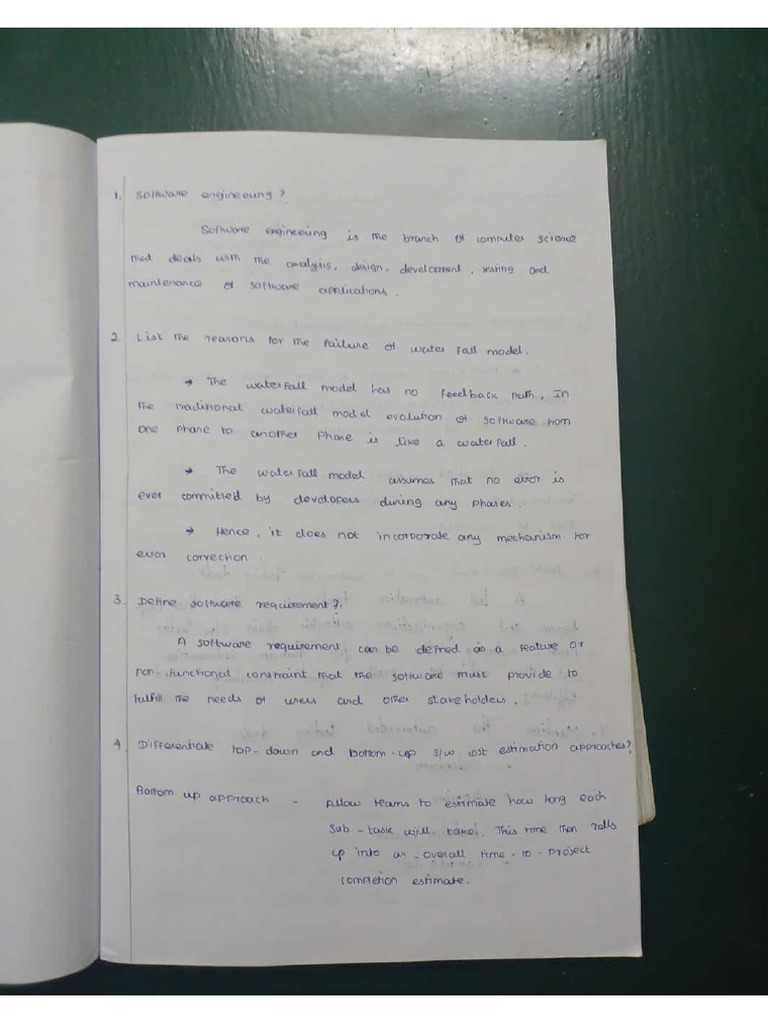 1. Software engineering?
Software engineering is the branch of computer science
that deals with the analysis, design, development, testing and
maintenance of software applications.
2. List the reasons for the failure of water fall model.
→ The waterfall model has no feedback path. In
the traditional waterfall model evolution of software from
one phase to another phase is like a waterfall.
→ The waterfall model assumes that no error is
ever committed by developers during any phases.
→ Hence, it does not incorporate any mechanism for
error correction.
3. Define software requirement?
A software requirement can be defined as a feature or
non-functional constraint that the software must provide to
fulfill the needs of users and other stakeholders.
4. Differentiate top-down and bottom-up S/W cost estimation approaches?
Bottom up approach - Allow teams to estimate how long each
sub-task will take. This time then rolls
up into an overall time-to-project
completion estimate.